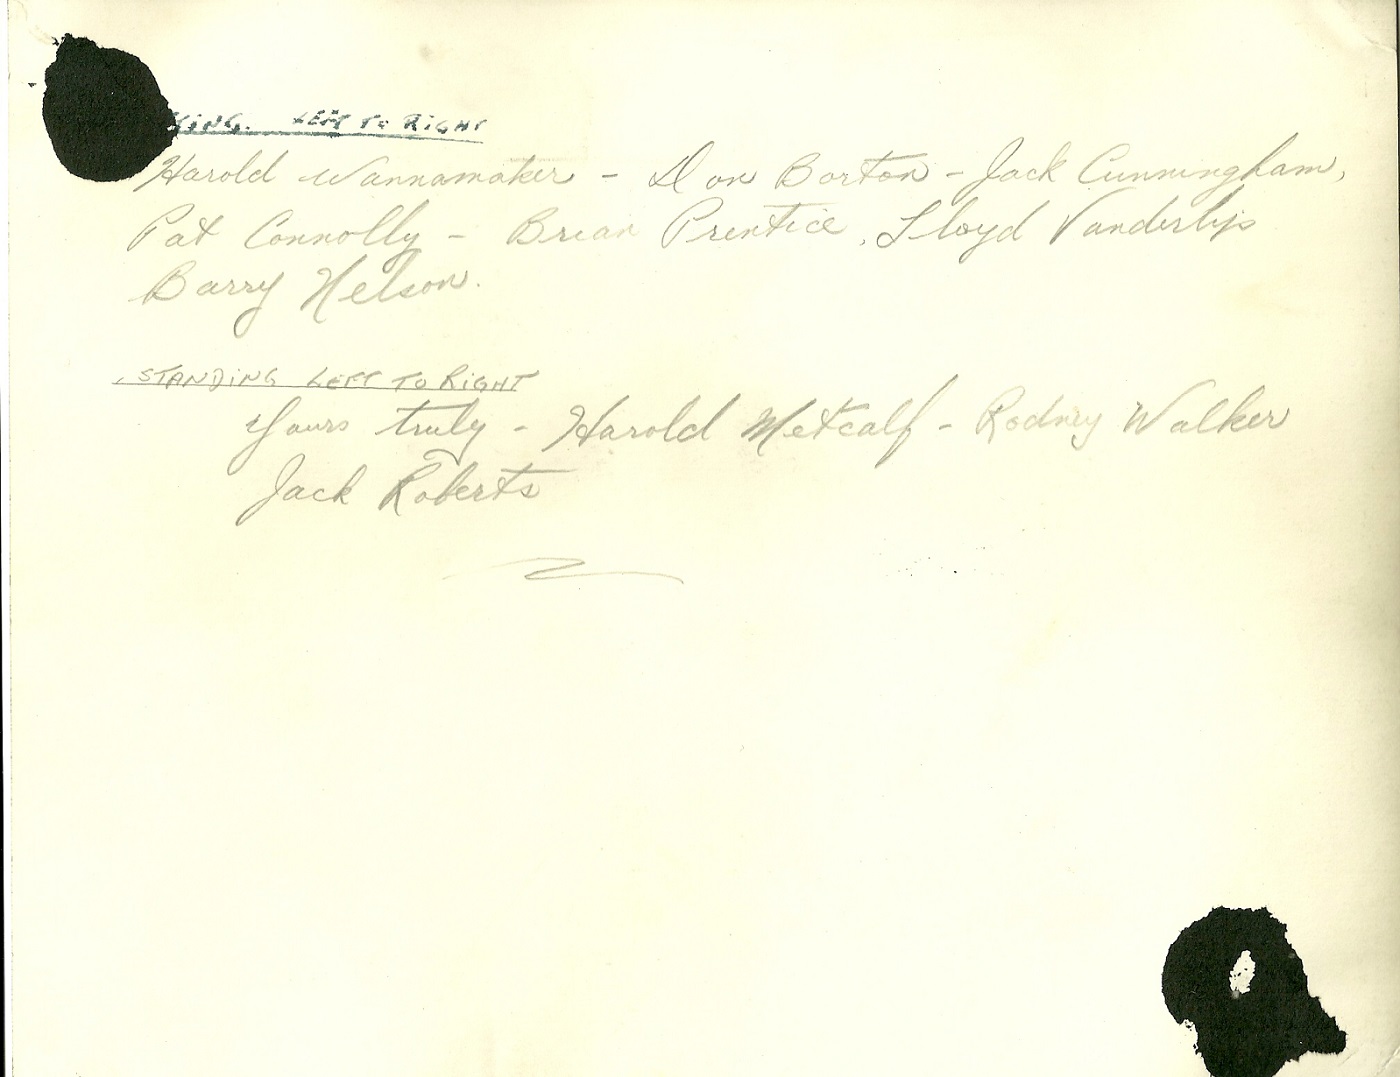 LEFT TO RIGHT
Harold Wannamaker - Don Borton - Jack Cunningham,
Pat Connolly - Brian Prentice, Lloyd Vanderlip
Barry Nelson.
STANDING LEFT TO RIGHT
Yours truly - Harold Metcalf - Rodney Walker
Jack Roberts